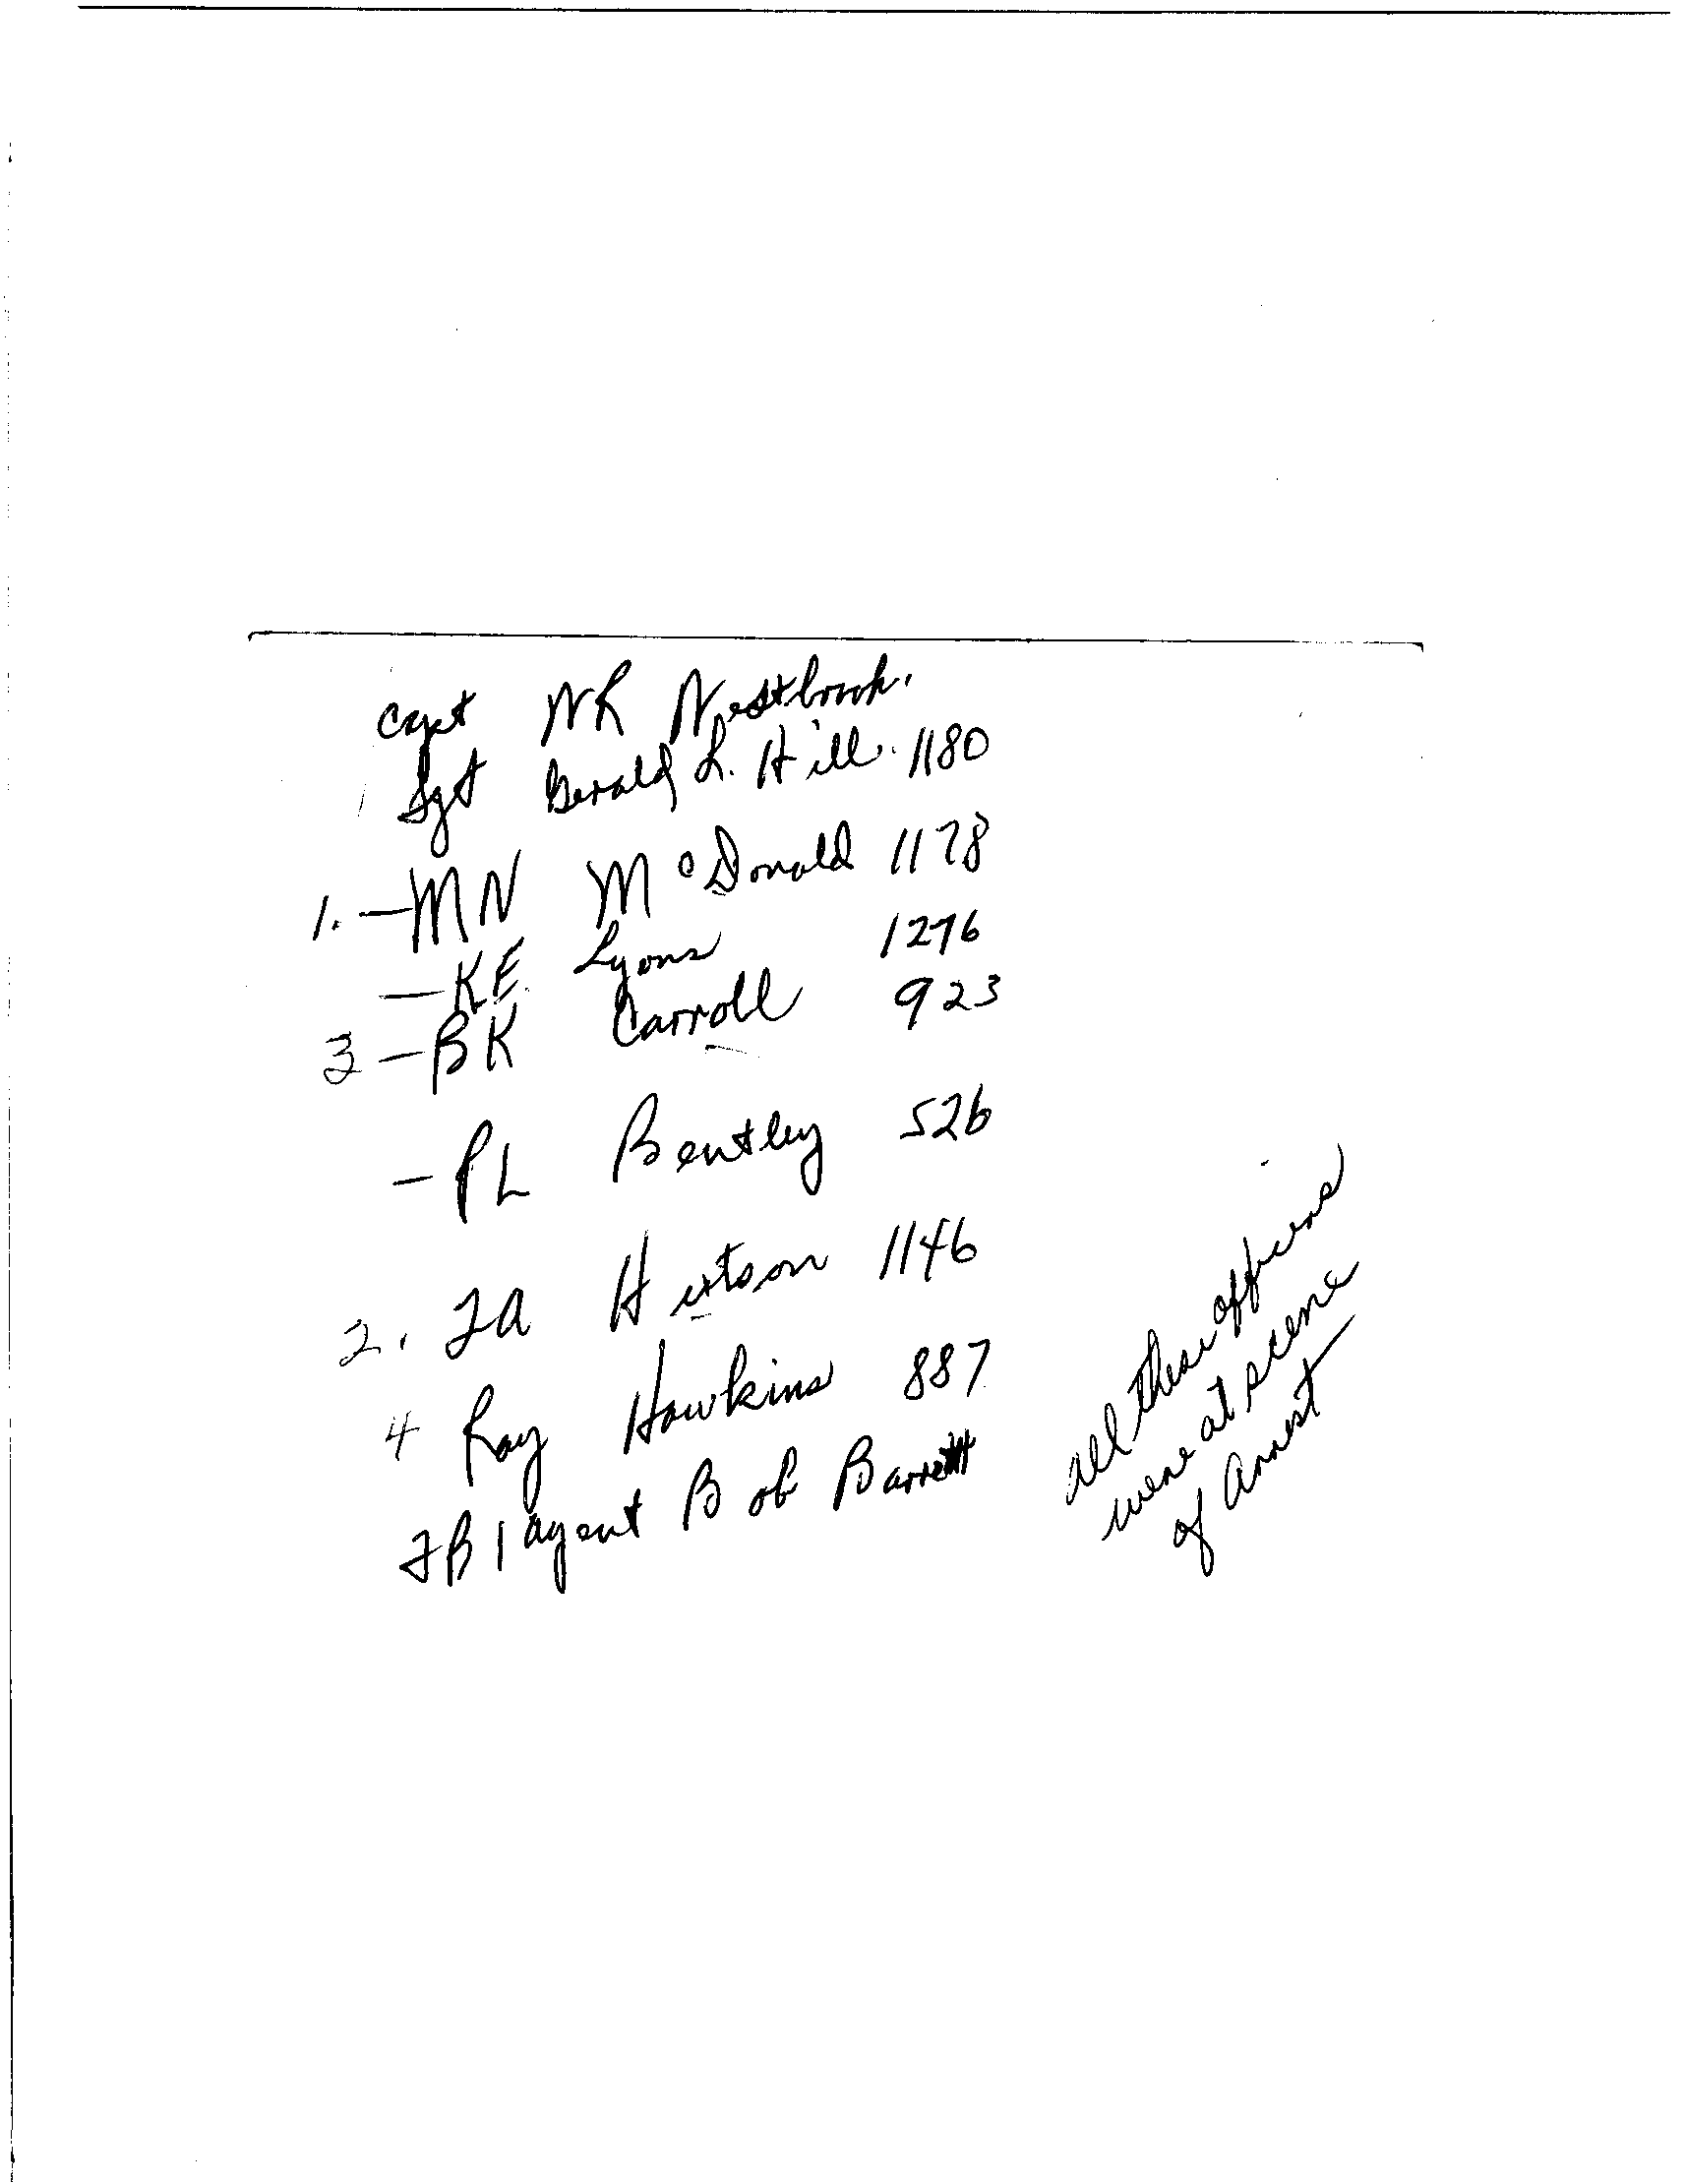 Capt WR Westbrook.
Sgt Gerald L. Hill. 1180
1. - MN McDonald 1178
- KE Lyons 1276
3 - BK Carroll 923
- PL Bentley 526
2. TA Hutson 1146
4 Ray Hawkins 887
FBI agent Bob Barrett
all these officers
were at scene
of arrest